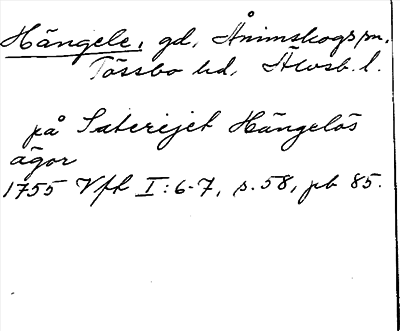 Hängele, gd, Ånimskogs sn,
Tössbo hd, Älvsb. l.
på Säterijet Hängelös
ägor
1755 Vfh I:6-7, s. 58, pb 85.